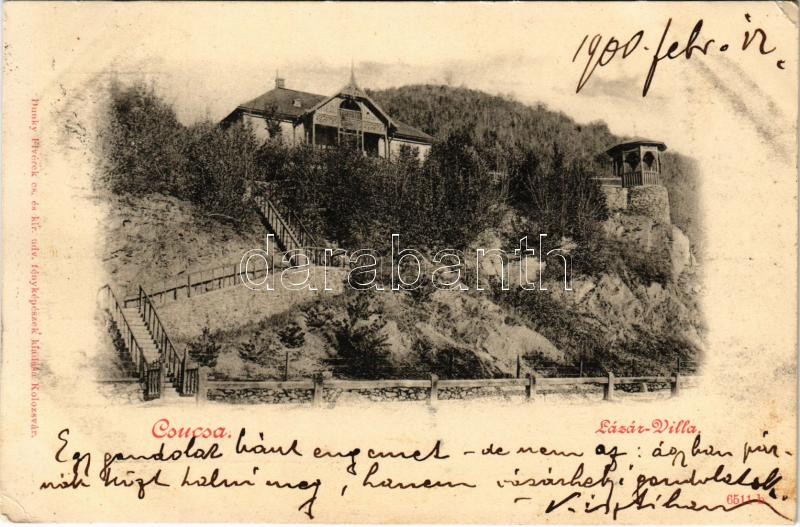 1900. febr. 12.
Dunky Fivérek cs. és kir. udv. fényképészek kiadása Kolozsvár.
darabanth
Csucsa.
Lázár-Villa.
Egy gondolat bánt engemet - de nem az: ágyban pár-
nák közt halni meg, hanem vásárhelyi gondolatok.
6511 b